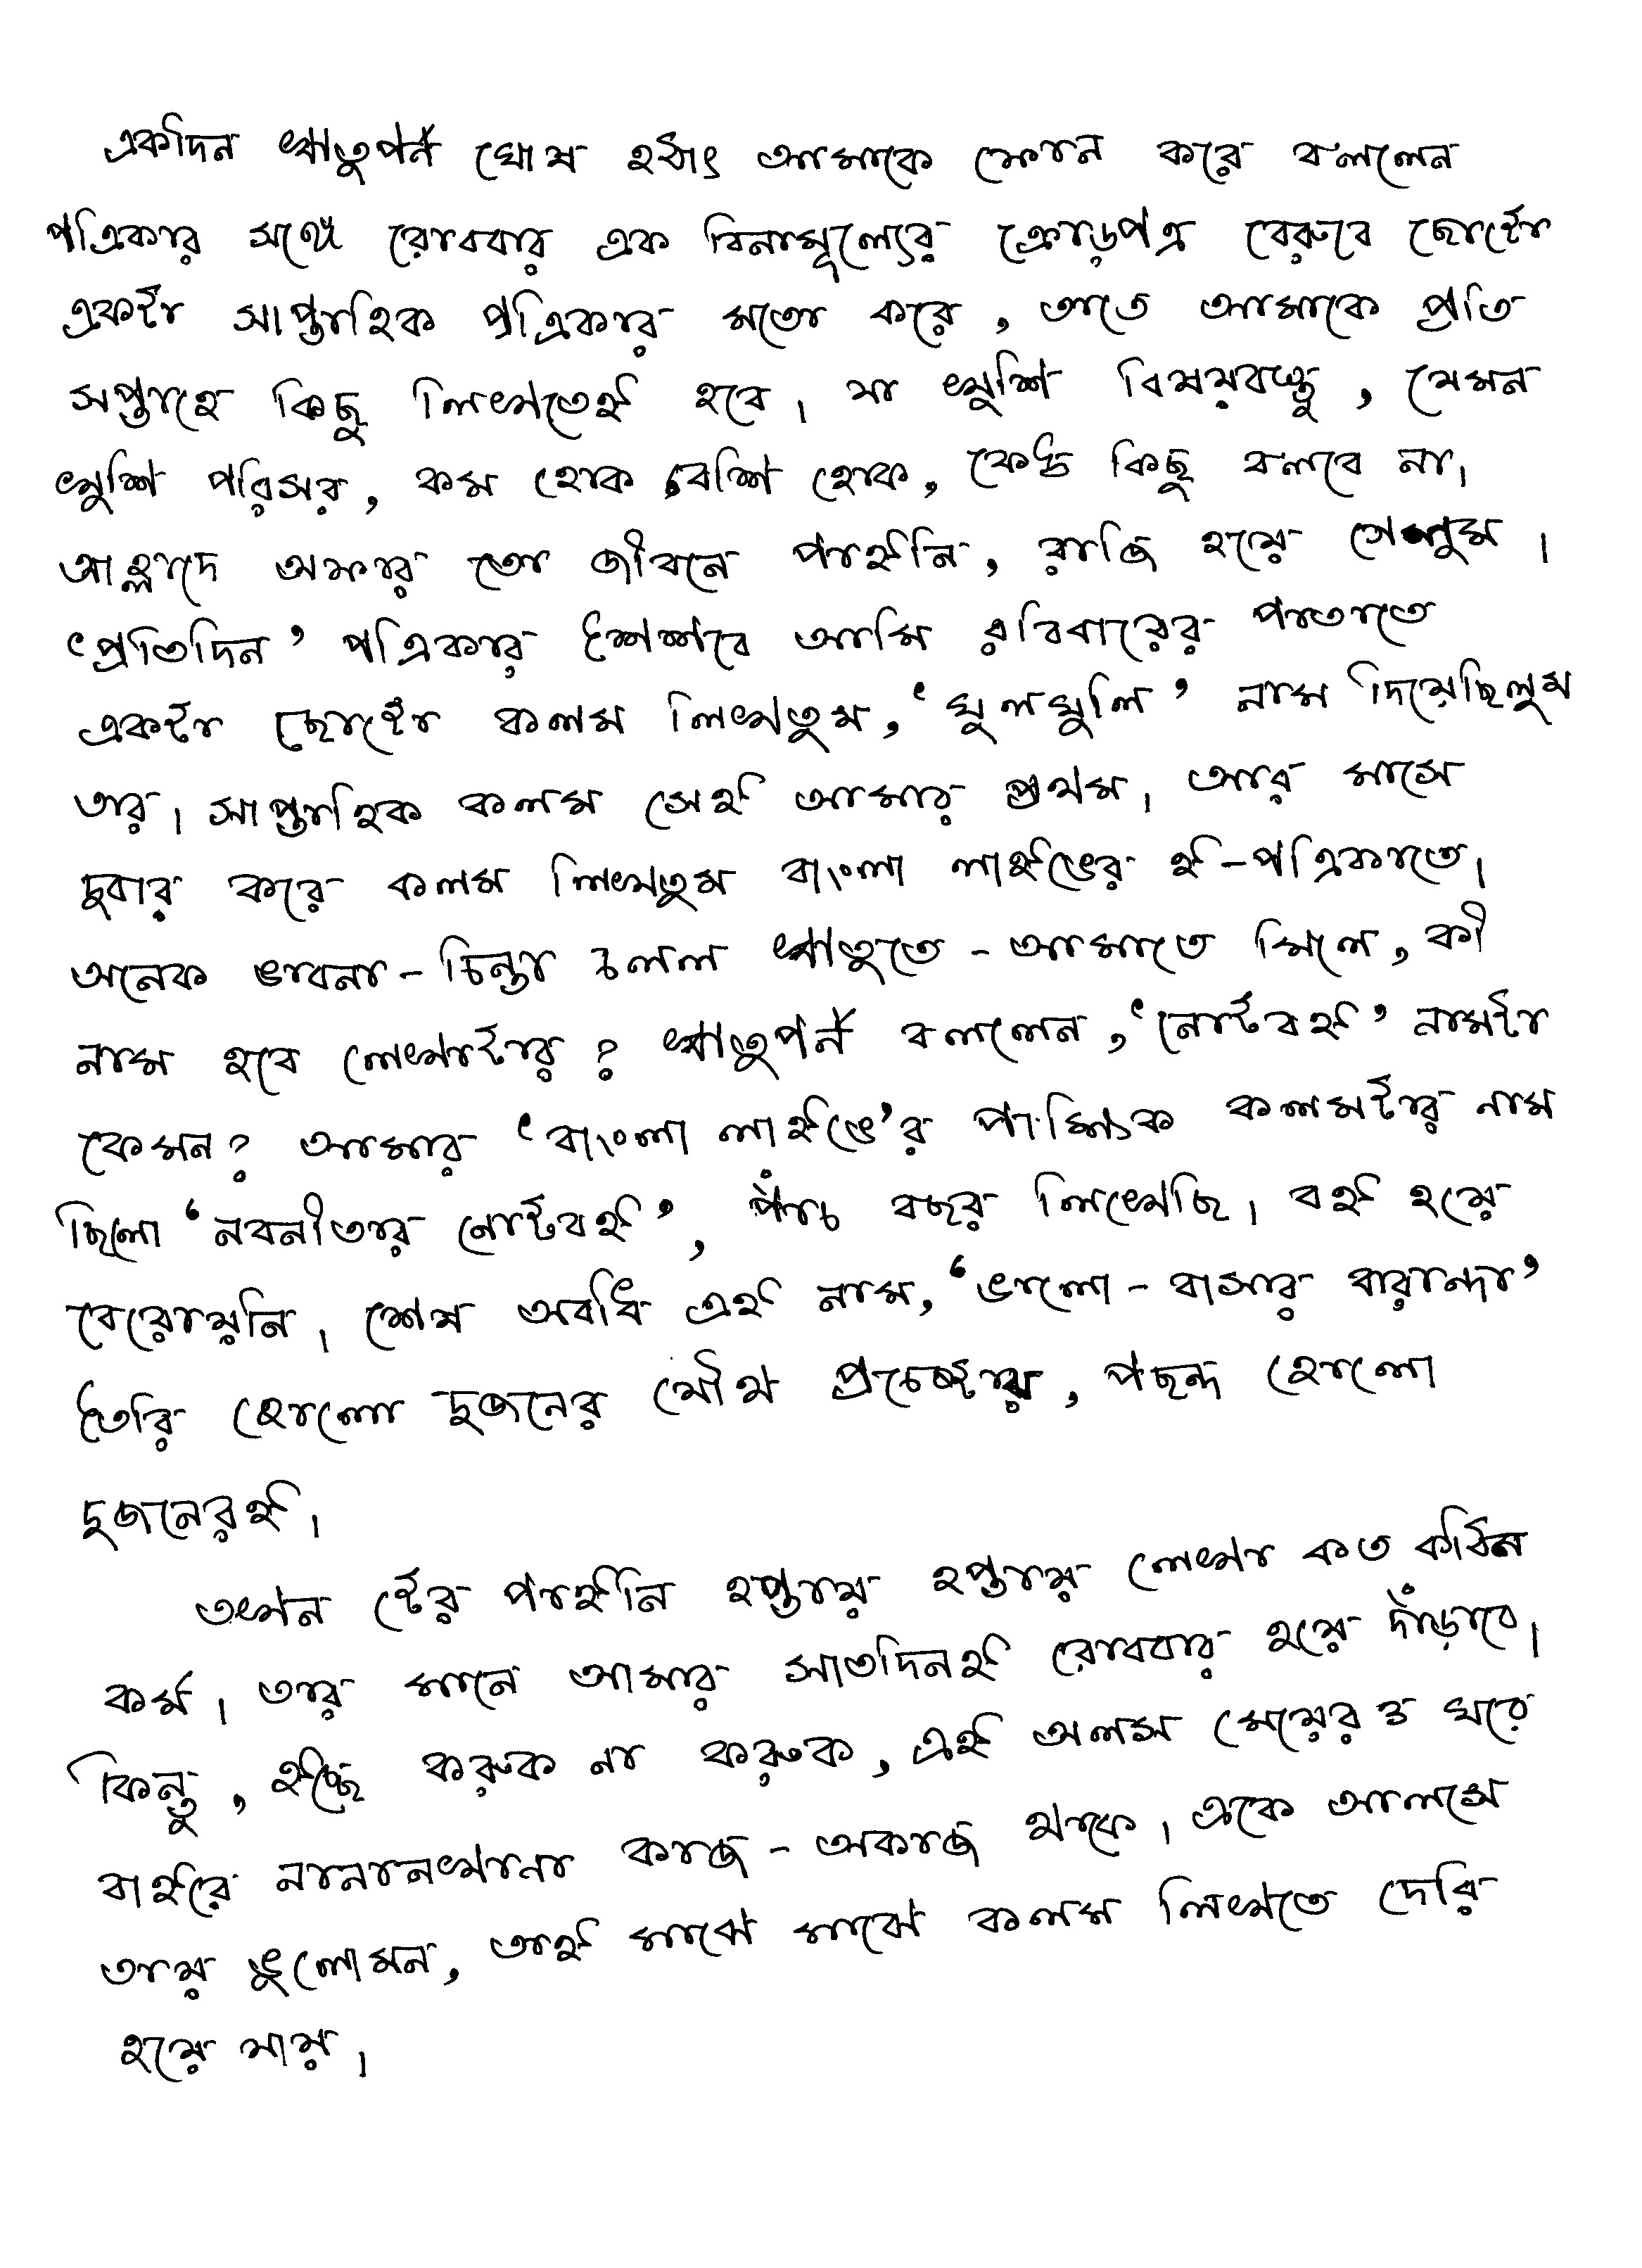 একদিন ঋতুপর্ন ঘোষ হঠাৎ আমাকে ফোন করে বললেন
পত্রিকার সঙ্গে রোববার এক বিনামূল্যের ক্রোড়পত্র বেরুবে ছোট্টো
একটা সাপ্তাহিক পত্রিকার মতো করে, তাতে আমাকে প্রতি
সপ্তাহে কিছু লিখতেই হবে। যা খুশি বিষয়বস্তু, যেমন
খুশি পরিসর, কম হোক বেশি হোক, কেউ কিছু বলবে না।
আহ্লাদে অফার তো জীবনে পাইনি, রাজি হয়ে গেলুম।
‘প্রতিদিন’ পত্রিকার শৈশবে আমি রবিবারের পাতাতে
একটা ছোট্টো কলম লিখতুম, ‘ঘুলঘুলি’ নাম দিয়েছিলুম
তার। সাপ্তাহিক কলম সেই আমার প্রথম। আর মাসে
দুবার করে কলম লিখতুম বাংলা লাইভের ই-পত্রিকাতে।
অনেক ভাবনা-চিন্তা চলল ঋতুতে-আমাতে মিলে, কী
নাম হবে লেখাটার? ঋতুপর্ন বললেন, ‘নোটবই’ নামটা
কেমন? আমার ‘বাংলা লাইভে’র পাক্ষিক কলমটার নাম
ছিলো ‘নবনীতার নোটবই’, পাঁচ বছর লিখেছি। বই হয়ে
বেরোয়নি। শেষ অবধি এই নাম, ‘ভালো-বাসার বারান্দা’
তৈরি হোলো দুজনের যৌথ প্রচেষ্টায়, পছন্দ হোলো
দুজনেরই।
তখন টের পাইনি হপ্তায় হপ্তায় লেখা কত কঠিন
কর্ম। তার মানে আমার সাতদিনই রোববার হয়ে দাঁড়াবে।
কিন্তু, ইচ্ছে করুক না করুক, এই অলস মেয়েরও ঘরে
বাইরে নানানখানা কাজ-অকাজ থাকে। একে আলসে
তায় ভুলোমন, তাই মাঝে মাঝে কলম লিখতে দেরি
হয়ে যায়।